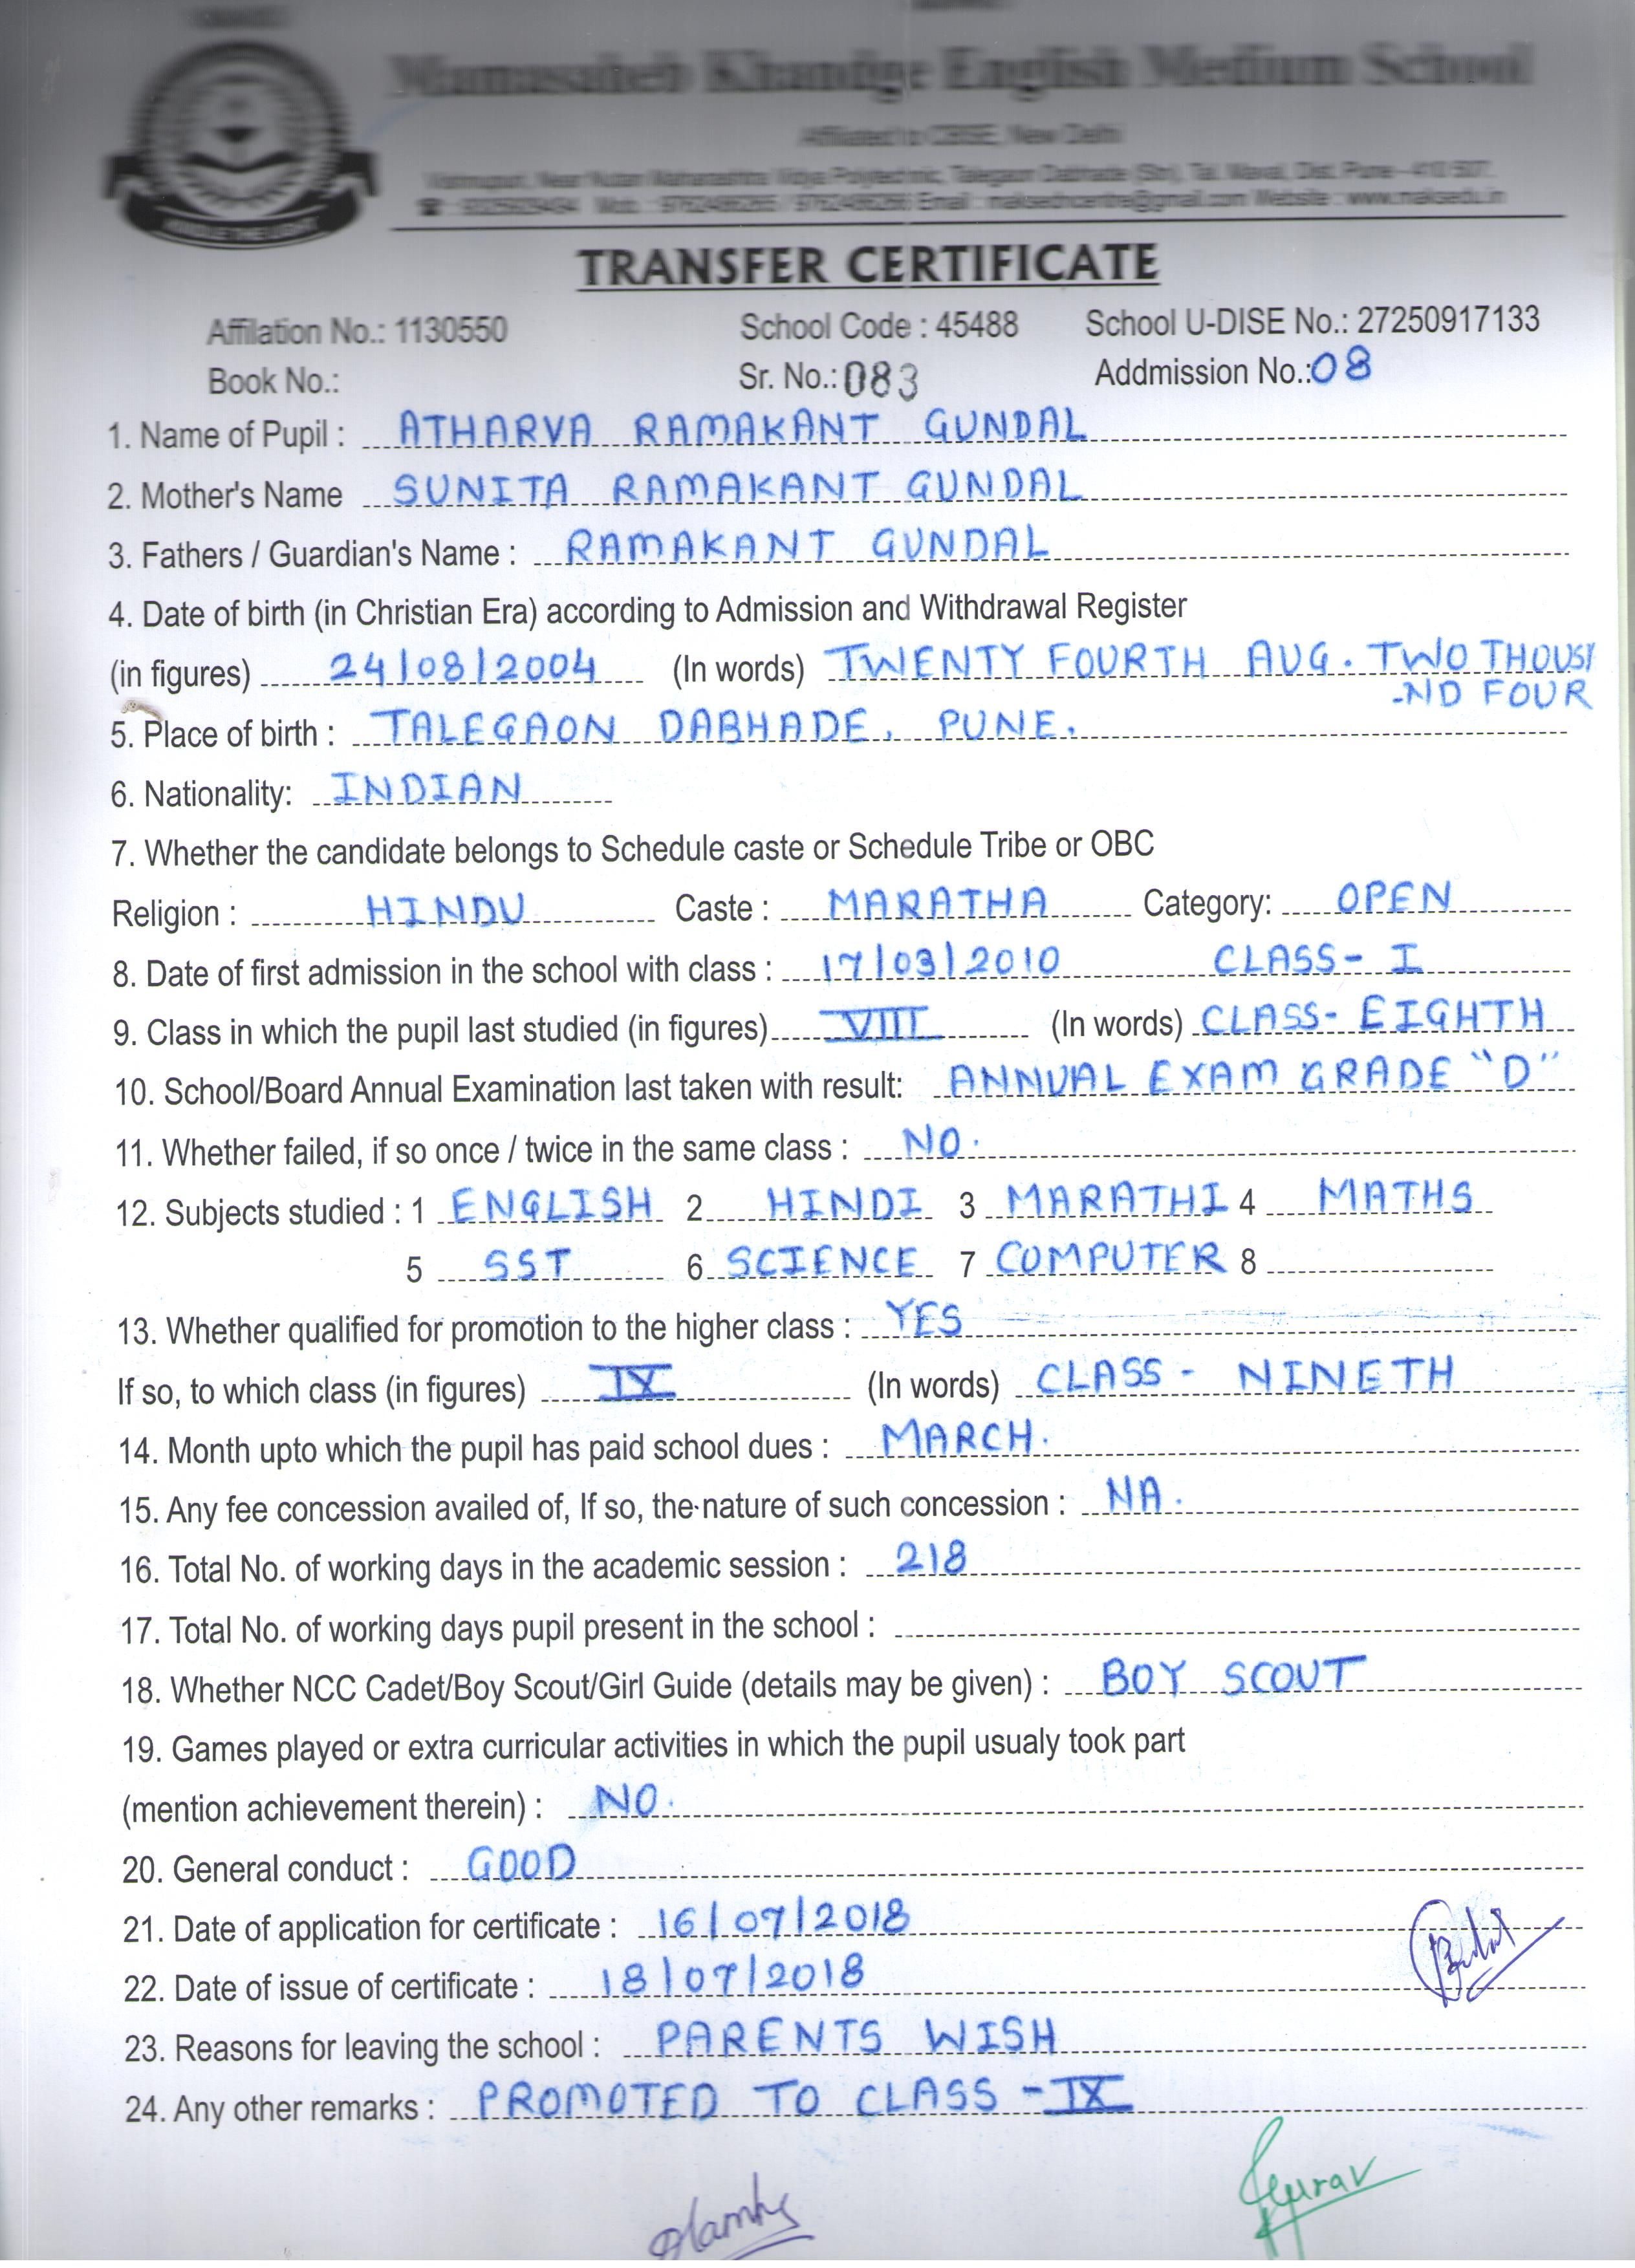 Mamasaheb Khandge English Medium School
Affiliated to CBSE, New Delhi
Vishnupuri, Near Nutan Maharashtra Vidya Polytechnic, Talegaon Dabhade (Stn), Tal. Maval, Dist. Pune - 410 507.
Email : Website : www.maksedu.in
TRANSFER CERTIFICATE
Affilation No.: 1130550 School Code : 45488 School U-DISE No.: 27250917133
Book No.: Sr. No.: 083 Addmission No.: 08
1. Name of Pupil : ATHARVA RAMAKANT GUNDAL
2. Mother's Name SUNITA RAMAKANT GUNDAL
3. Fathers / Guardian's Name : RAMAKANT GUNDAL
4. Date of birth (in Christian Era) according to Admission and Withdrawal Register
(in figures) 24/08/2004 (In words) TWENTY FOURTH AUG. TWO THOUSA
-ND FOUR
5. Place of birth : TALEGAON DABHADE, PUNE.
6. Nationality: INDIAN
7. Whether the candidate belongs to Schedule caste or Schedule Tribe or OBC
Religion : HINDU Caste : MARATHA Category: OPEN
8. Date of first admission in the school with class : 17/03/2010 CLASS- I
9. Class in which the pupil last studied (in figures) VIII (In words) CLASS- EIGHTH
10. School/Board Annual Examination last taken with result: ANNUAL EXAM GRADE "D"
11. Whether failed, if so once / twice in the same class : NO.
12. Subjects studied : 1 ENGLISH 2 HINDI 3 MARATHI 4 MATHS
5 SST 6 SCIENCE 7 COMPUTER 8
13. Whether qualified for promotion to the higher class : YES
If so, to which class (in figures) IX (In words) CLASS - NINETH
14. Month upto which the pupil has paid school dues : MARCH.
15. Any fee concession availed of, If so, the nature of such concession : NA.
16. Total No. of working days in the academic session : 218
17. Total No. of working days pupil present in the school :
18. Whether NCC Cadet/Boy Scout/Girl Guide (details may be given) : BOY SCOUT
19. Games played or extra curricular activities in which the pupil usualy took part
(mention achievement therein) : NO.
20. General conduct : GOOD
21. Date of application for certificate : 16/07/2018
22. Date of issue of certificate : 18/07/2018
23. Reasons for leaving the school : PARENTS WISH
24. Any other remarks : PROMOTED TO CLASS - IX